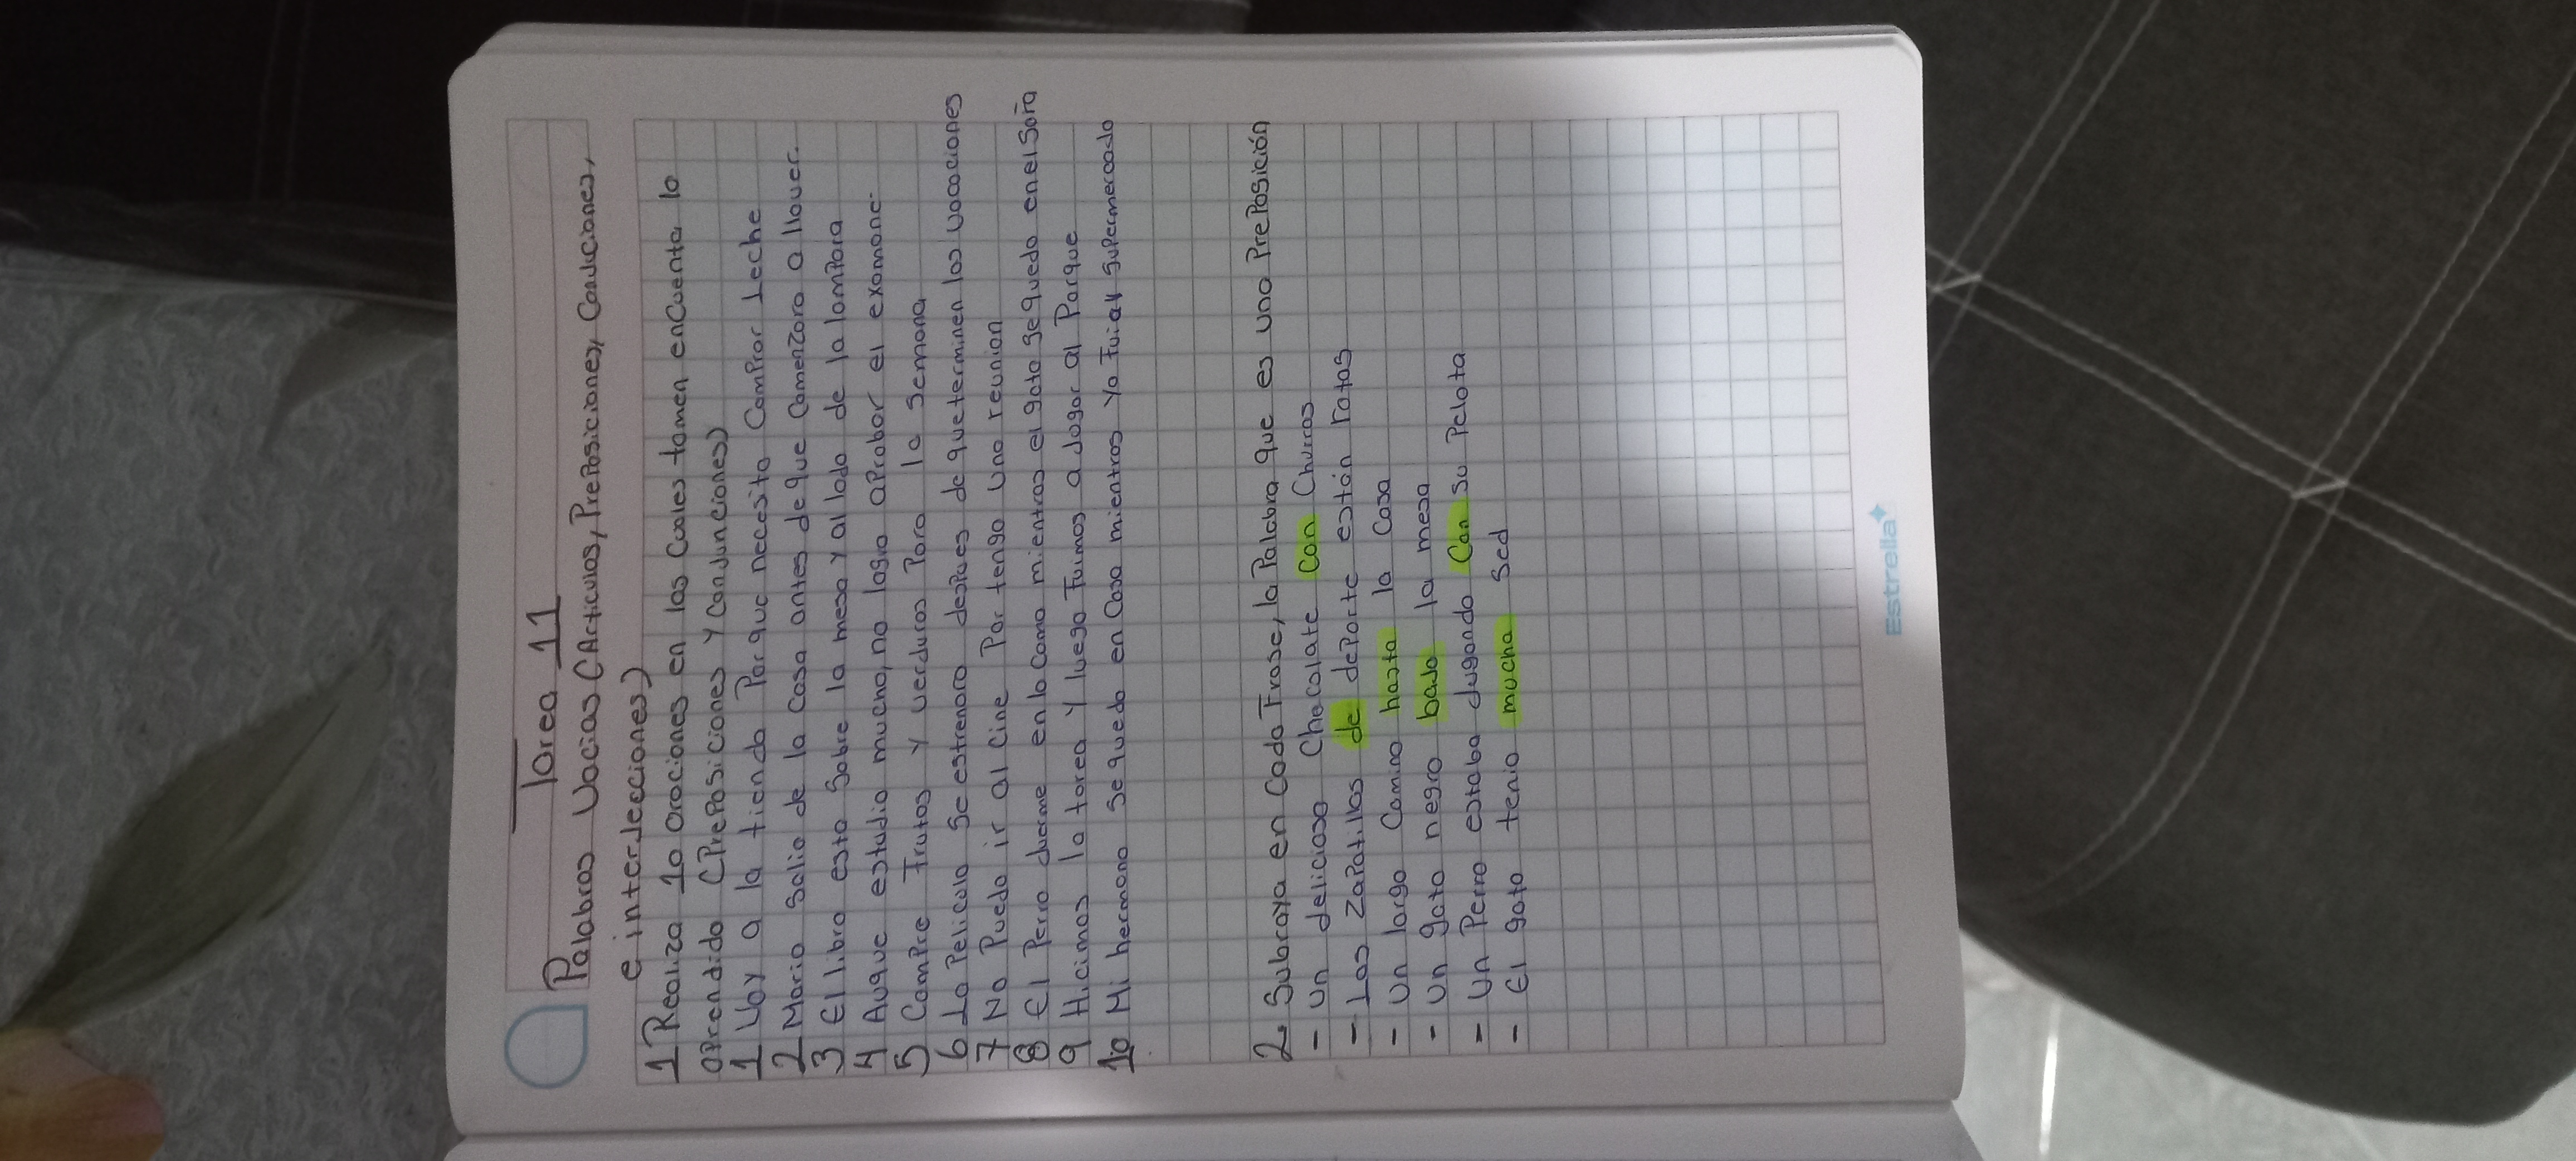 Tarea 11
Palabras Vacias (Articulos, Preposiciones, Conjuciones,
e interjecciones)
1 Realiza 10 oraciones en las Cuales tomen encuenta lo
aprendido (Preposiciones y conjunciones)
1 Voy a la tienda Porque necesito Comprar Leche
2 Maria Salio de la casa antes de que Comenzara a llover.
3 El libro esta Sobre la mesa y al lado de la lampara
4 Auque estudio mucho, no logro aprobar el examene
5 Compre Frutas y verduras Para la semana
6 La Pelicula Se estrenara despues de que terminen las vacaciones
7 No Puedo ir al Cine Por tengo una reunion
8 El Perro duerme en la cama mientras el gato se quedo en el Sofa
9 Hicimos la tarea y luego Fuimos a Jugar al Parque
10 Mi hermano Se quedo en Casa mientras Yo Fui al Supermercado
2. Subraya en Cada Frase, la Palabra que es una Preposición
- Un delicioso Chocolate con Churros
- Las Zapatillas de deporte están rotas
- Un largo Camino hasta la Casa
- Un gato negro bajo la mesa
- Un Perro estaba Jugando Con su Pelota
- El gato tenia mucha Sed
Estrella